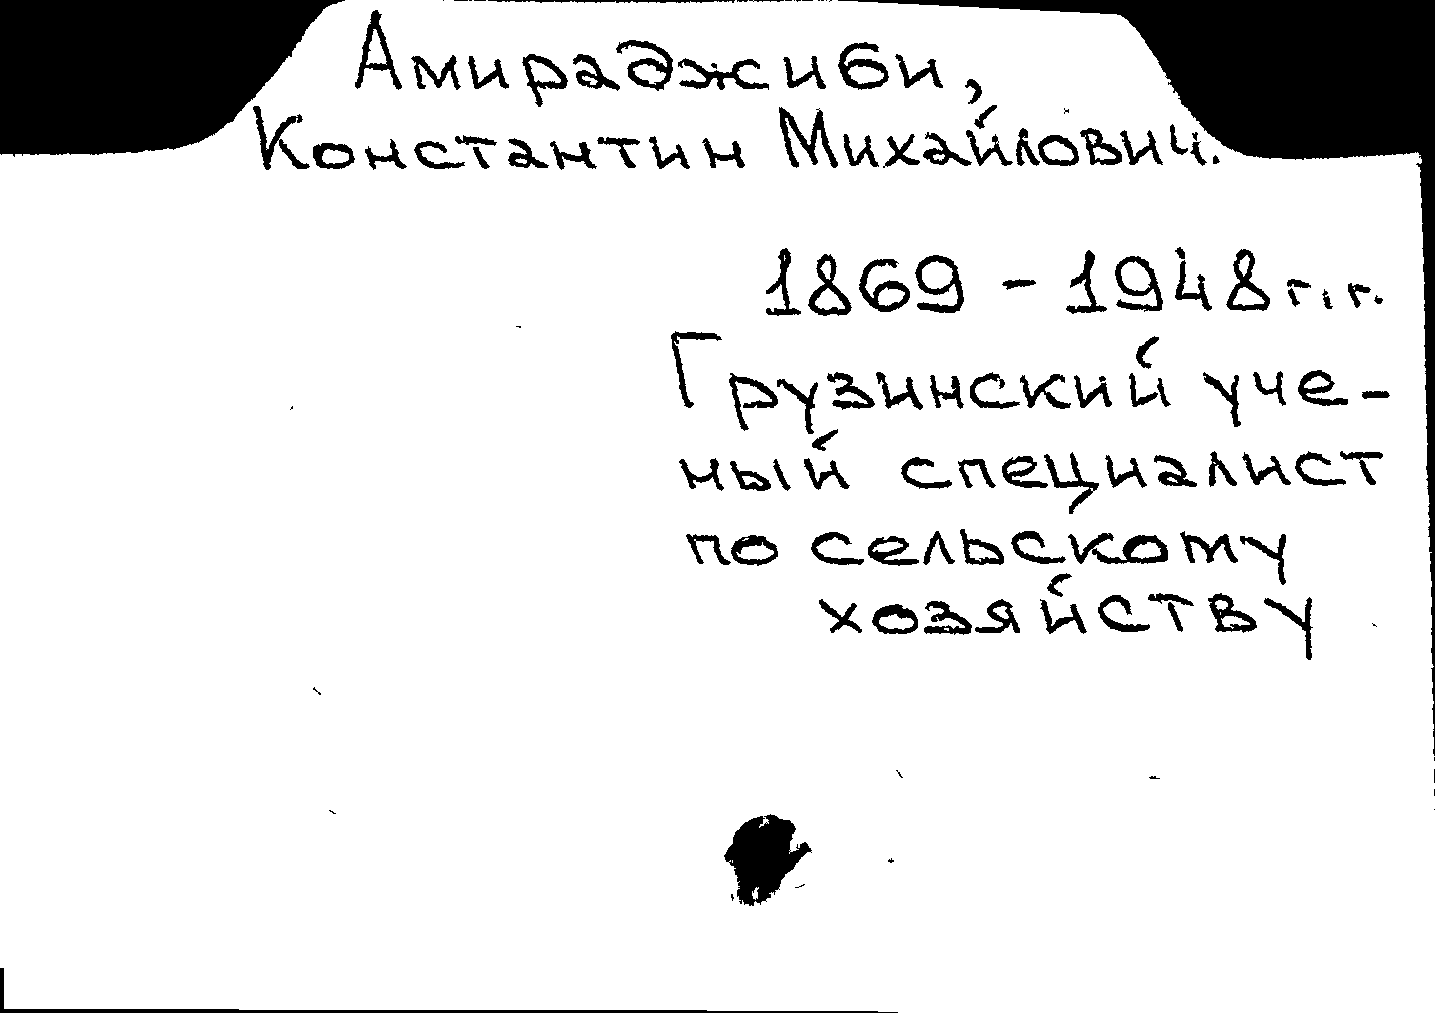 Амираджиби,
Константин Михайлович.
1869 - 1948 г.г.
Грузинский уче-
ный специалист
по сельскому
хозяйству